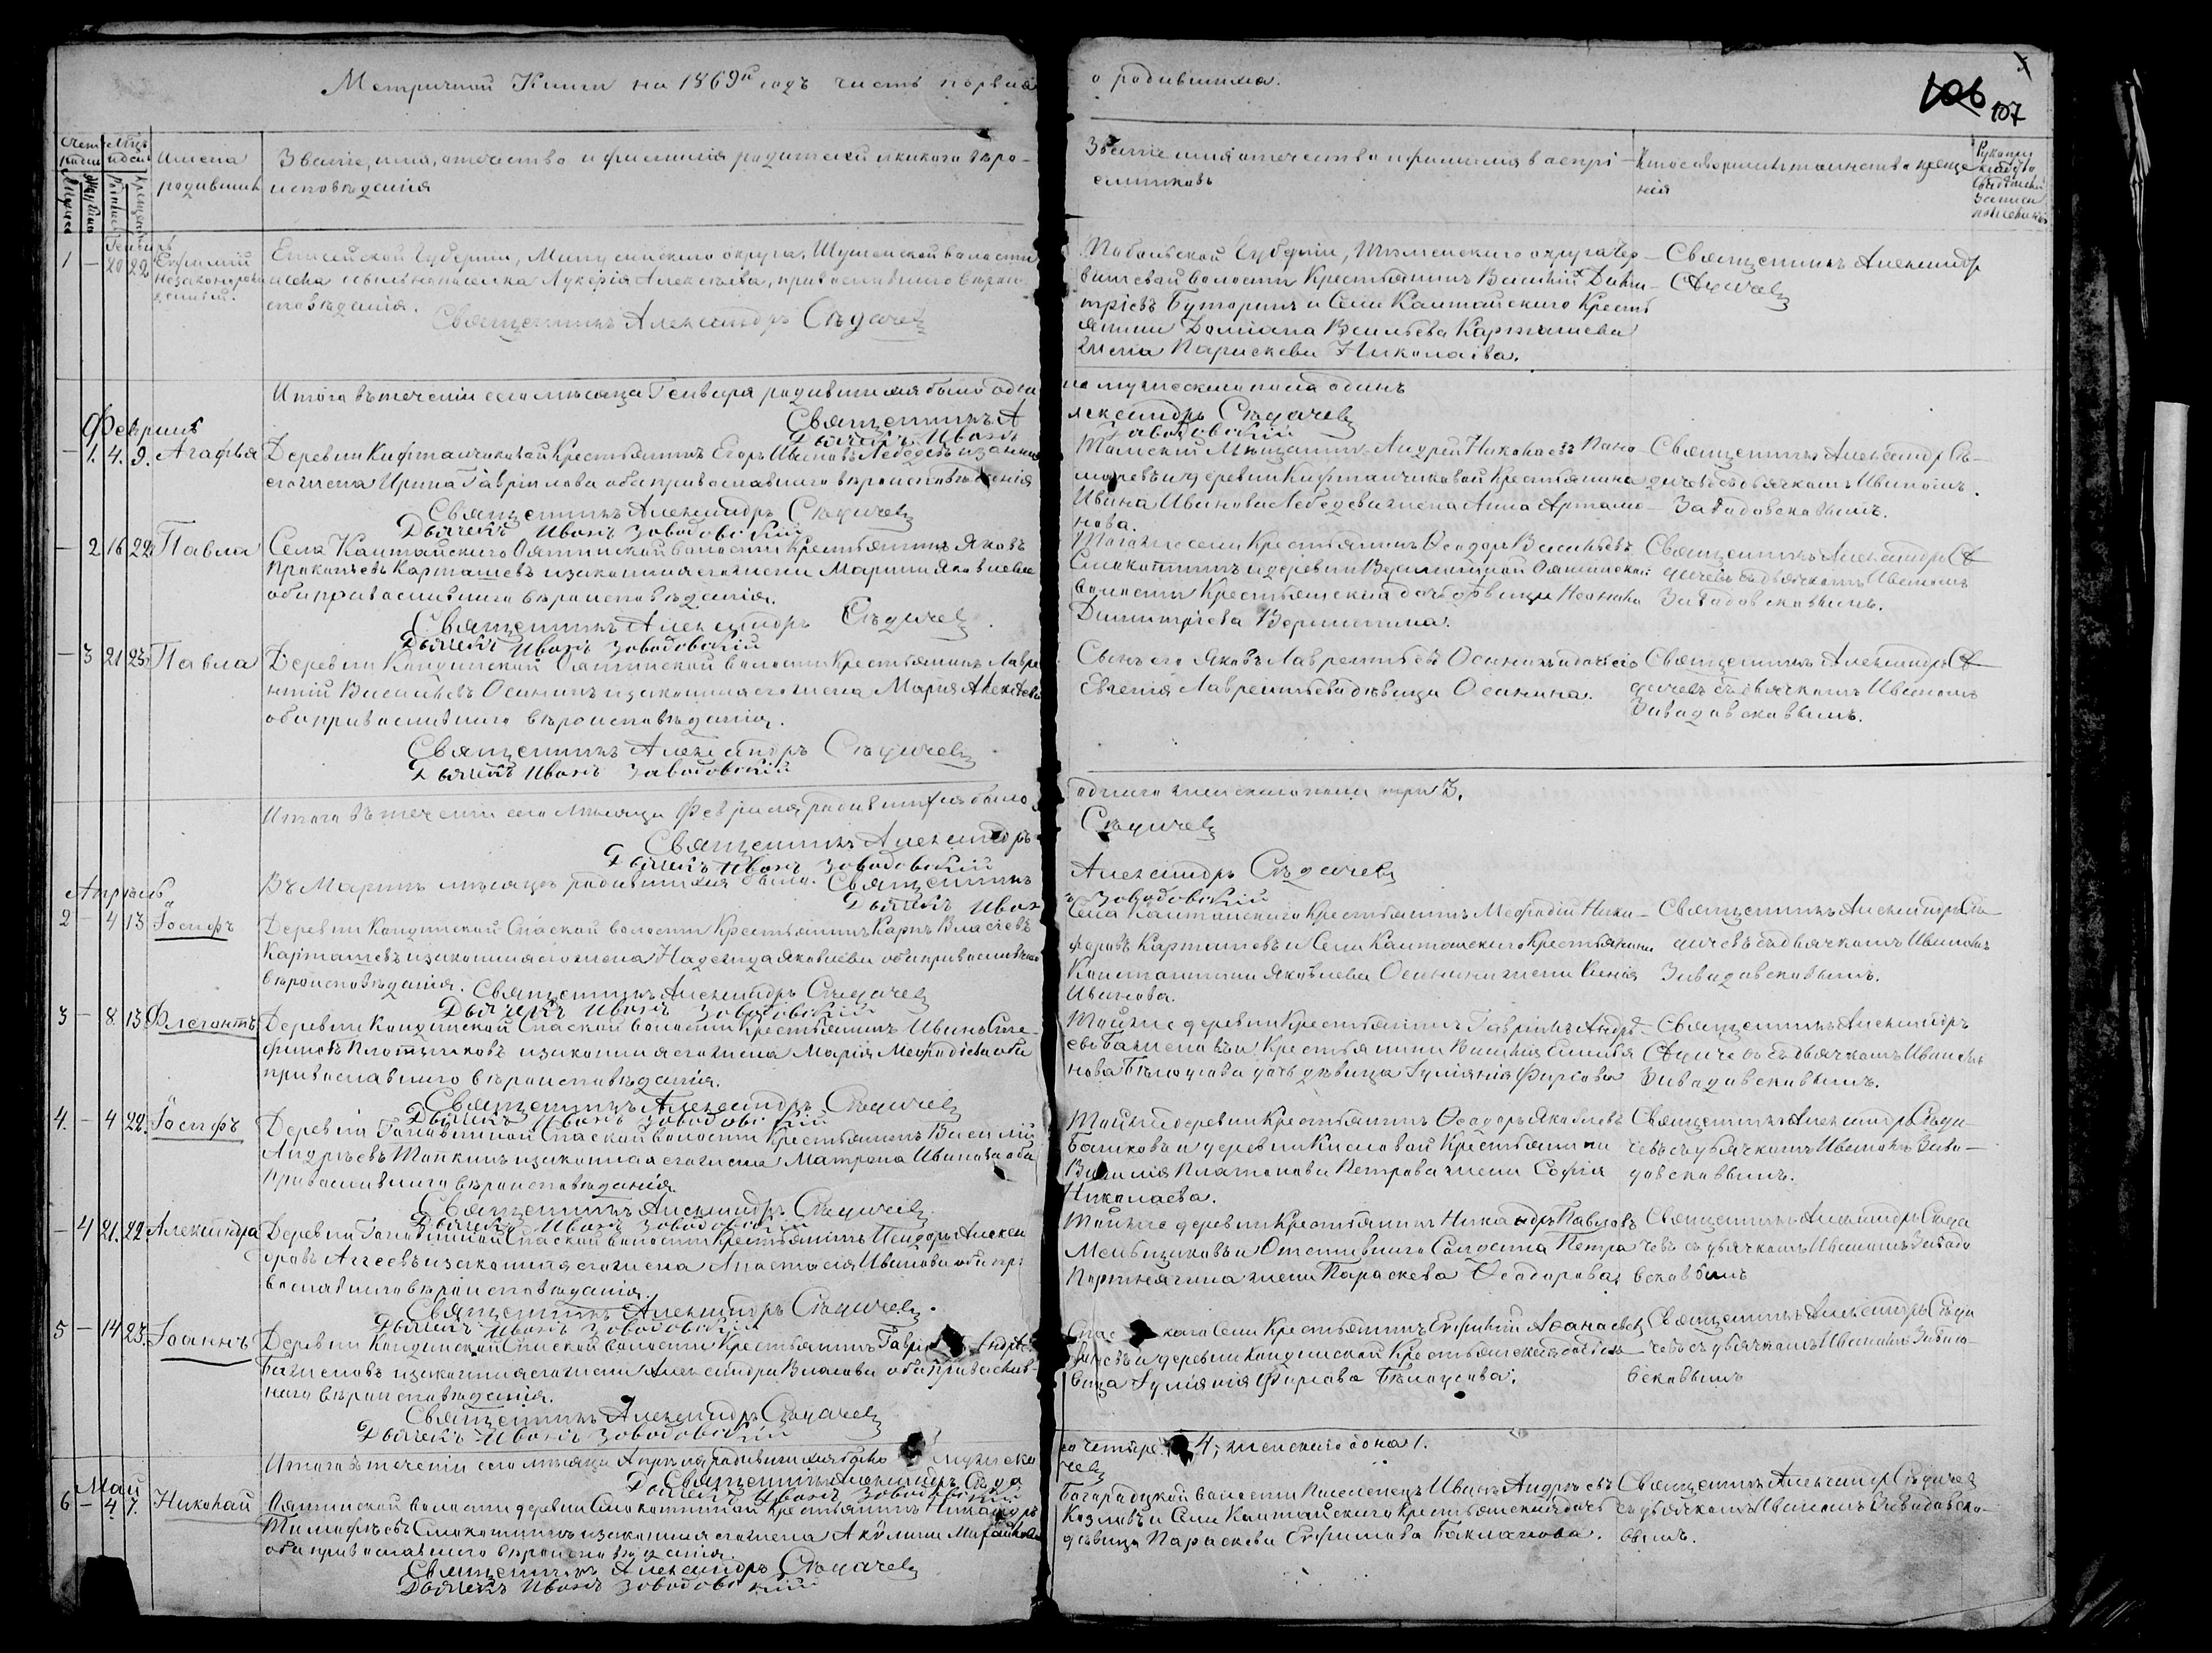 Метричной Книги на 1869й годъ часть первая
о родившихся.
106 107
Счетъ
Мцъ
и день
Имена
родившихся
Званіе, имя, отечество и фамилія родителей и какого вѣро-
исповѣданія
Званіе имя отечество и фамилія воспрі-
емниковъ
Кто совершилъ таинство креще-
нія
Генварь
1 – 20 22 Евфимій
незаконорож
денный.
Енисейской Губерніи, Минусинскаго округа, Шушенской волости
Лукерія Алексѣева, православнаго вѣрои
сповѣданія.
Священникъ Александръ Сѣдачевъ
Тобольской Губерніи, Тюменскаго округа Чер
вишевой волости Крестьянинъ Василій Дими-
тріевъ Буторинъ и Села Каштайскаго Кресть
янина Даміана Васильева Карташева
жена Параскева Николаева.
Священникъ Александръ
Сѣдачевъ
Итого въ теченіи сего мѣсяца Генваря родившихся было одинъ
мужескаго пола одинъ
Священникъ Александръ Сѣдачевъ
Дьячекъ Иванъ Заводовскій
Февраль
– 1. 4. 9. Агафья
Деревни Кафтанчиковой Крестьянинъ Егоръ Ивановъ Лебедевъ и законная
его жена Ирина Гавріилова оба православнаго вѣроисповѣданія
Священникъ Александръ Сѣдачевъ
Дьячекъ Иванъ Заводовскій
Томскій Мѣщанинъ Андрей Николаевъ Поно-
маревъ и деревни Кафтанчиковой Крестьянина
Ивана Иванова Лебедева жена Анна Артамо-
нова.
Священникъ Александръ Сѣ-
дачевъ съ дьячкомъ Иваномъ
Завадовскавымъ.
– 2 16 22 Павла
Села Каштайскаго Ояшинской волости Крестьянинъ Яковъ
Прокопьевъ Карташевъ и законная его жена Марина Яковлева
оба православнаго вѣроисповѣданія.
Священникъ Александръ Сѣдачевъ
Дьячекъ Иванъ Заводовскій
Тогоже села Крестьянинъ Ѳеодоръ Васильевъ
Смокотинъ и деревни Ояшинской
волости Крестьянская дочь дѣвица
Димитріева Вершинина.
Священникъ Александръ Сѣ
дачевъ съ дьячкомъ Иваномъ
Завадовскавымъ.
– 3 21 23 Павла
Деревни Кандинской Ояшинской волости Крестьянинъ Лавре
нтій Васильевъ Осанинъ и законная его жена Марія Алексѣева
оба православнаго вѣроисповѣданія.
Священникъ Александръ Сѣдачевъ
Дьячекъ Иванъ Заводовскій
Сынъ его Яковъ Лаврентьевъ Осанинъ и дочь его
Евгенія Лаврентьева дѣвица Осанина.
Священникъ Александръ Сѣ
дачевъ съ дьячкомъ Иваномъ
Завадовскавымъ.
Итого въ теченіи сего мѣсяца Февраля родившихся было
одного женскаго пола три 3.
Священникъ Александръ Сѣдачевъ
Дьячекъ Иванъ Заводовскій
Въ Мартѣ мѣсяцѣ родившихся было. Священникъ Александръ Сѣдачевъ
Дьячекъ Иванъ Заводовскій
Апрѣль
2 – 4 13 Іосифъ
Деревни Кандинской Спаской волости Крестьянинъ Карпъ Власіевъ
Карташевъ и законная его жена Надежда Яковлева оба православнаго
вѣроисповѣданія. Священникъ Александръ Сѣдачевъ
Дьячекъ Иванъ Заводовскій
Села Каштайскаго Крестьянинъ Меѳодій Ники-
форовъ Карташевъ и Села Каштайскаго Крестьянина
Константина Яковлева Осанина жена Ксенія
Иванова.
Священникъ Александръ Сѣ-
дачевъ съ дьячкомъ Иваномъ
Завадовскавымъ.
3 – 8 13 Флегонтъ
Деревни Кандинской Спаской волости Крестьянинъ Иванъ Сте-
фановъ Плотниковъ и законная его жена Марія Меѳодіева оба
православнаго вѣроисповѣданія.
Священникъ Александръ Сѣдачевъ
Дьячекъ Иванъ Заводовскій
Тойже деревни Крестьянинъ Гавріилъ Андрѣ-
евъ Баженовъ и Крестьянина
Бѣлоусова дочь дѣвица Іуліянія Фирсова
Священникъ Александръ
Сѣдачевъ съ дьячкомъ Иваномъ
Завадовскавымъ.
4. – 4 22. Іосифъ
Деревни Головиной Спаской волости Крестьянинъ Василій
Андрѣевъ Тапкинъ и законная его жена Матрона Иванова оба
православнаго вѣроисповѣданія.
Священникъ Александръ Сѣдачевъ
Дьячекъ Иванъ Заводовскій
Тойже деревни Крестьянинъ Ѳеодоръ Яковлевъ
и деревни Кисловой Крестьянина
Василія Платонова Петрова жена Софія
Николаева.
Священникъ Александръ Сѣда-
чевъ съ дьячкомъ Иваномъ Заво-
довскавымъ.
– 4 21. 22. Александра
Деревни Головиной Спаской волости Крестьянинъ Исидоръ Алексан
дровъ Агеевъ и законная его жена Анастасія Иванова оба пр
вославнаго вѣроисповѣданія.
Священникъ Александръ Сѣдачевъ.
Дьячекъ Иванъ Заводовскій
Тойже деревни Крестьянинъ Никандръ Павловъ
Мельниковъ и Отставнаго Солдата Петра
Портнягина жена Параскева Ѳеодорова.
Священникъ Александръ Сѣда
чевъ съ дьячкомъ Иваномъ Завадо
вскавымъ
5 – 14 23. Іоаннъ
Деревни Кандинской Спаской волости Крестьянинъ Гавріилъ Андрѣевъ
Баженовъ и законная его жена Александра Власова оба православ-
наго вѣроисповѣданія.
Священникъ Александръ Сѣдачевъ
Дьячекъ Иванъ Заводовскій
Спасскаго Села Крестьянинъ Евфимій Аѳанасьевъ
и деревни Кандинской Крестьянская дочь дѣ-
вица Іуліянія Фирсова Бѣлоусова.
Священникъ Александръ Сѣда
чевъ съ дьячкомъ Иваномъ Завадо-
вскавымъ
Итого въ теченіи сего мѣсяца Апрѣля родившихся было мужеска
го четыре 4, женскаго одна 1.
Священникъ Александръ Сѣдачевъ
Дьячекъ Иванъ Заводовскій
Май
6 – 4 7. Николай
Ояшинской волости деревни Смокотиной Крестьянинъ Никандръ
Тимофѣевъ Смокотинъ и законная его жена Акулина Михайлова
оба православнаго вѣроисповѣданія.
Священникъ Александръ Сѣдачевъ
Дьячекъ Иванъ Заводовскій
Богородцкой волости Поселенецъ Иванъ Андрѣевъ
Козловъ и Села Каштайскаго Крестьянская дочь
дѣвица Параскева Евфимова Бакланова.
Священникъ Александръ Сѣдачевъ
съ дьячкомъ Иваномъ Завадовска-
вымъ.